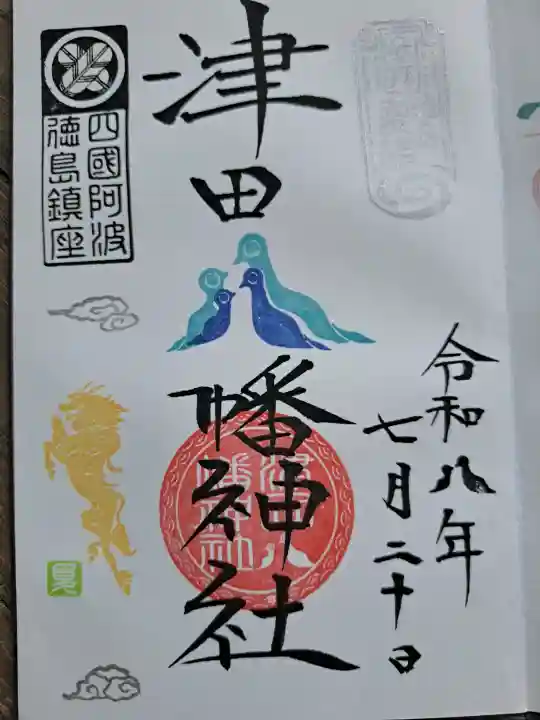 令和八年
七月二十日
津田八幡神社
四國阿波
徳島鎮座
夏